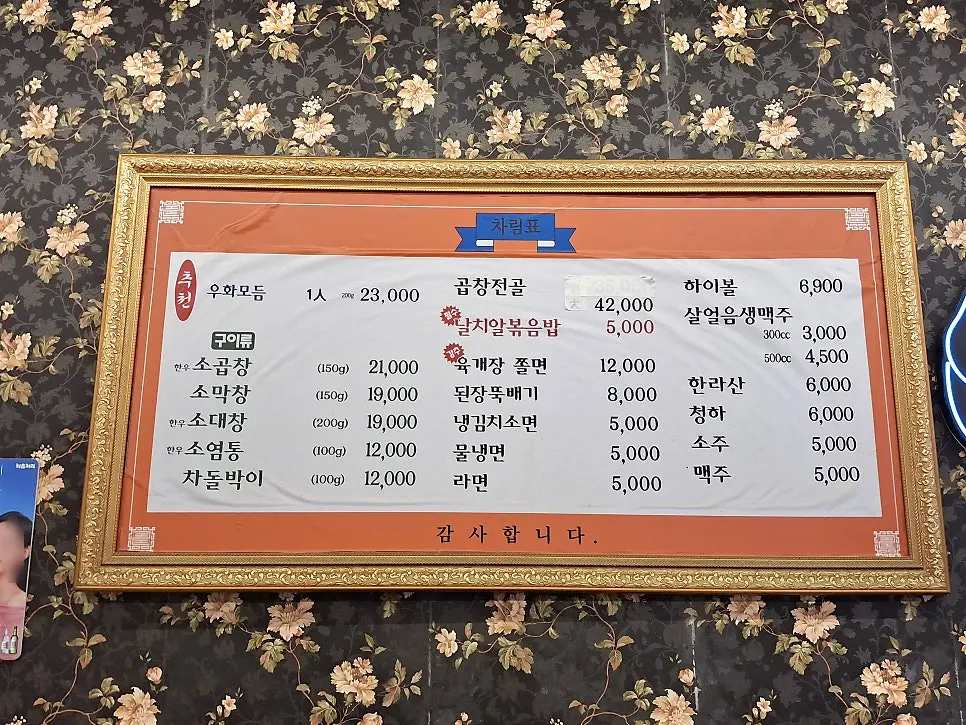 차림표
추천
우화모듬 1人 200g 23,000
구이류
한우 소곱창 (150g) 21,000
소막창 (150g) 19,000
한우 소대창 (200g) 19,000
한우 소염통 (100g) 12,000
차돌박이 (100g) 12,000
곱창전골
大 42,000
날치알볶음밥 5,000
육개장 쫄면 12,000
된장뚝배기 8,000
냉김치소면 5,000
물냉면 5,000
라면 5,000
하이볼 6,900
살얼음생맥주
300cc 3,000
500cc 4,500
한라산 6,000
청하 6,000
소주 5,000
맥주 5,000
감사합니다.
처음처럼